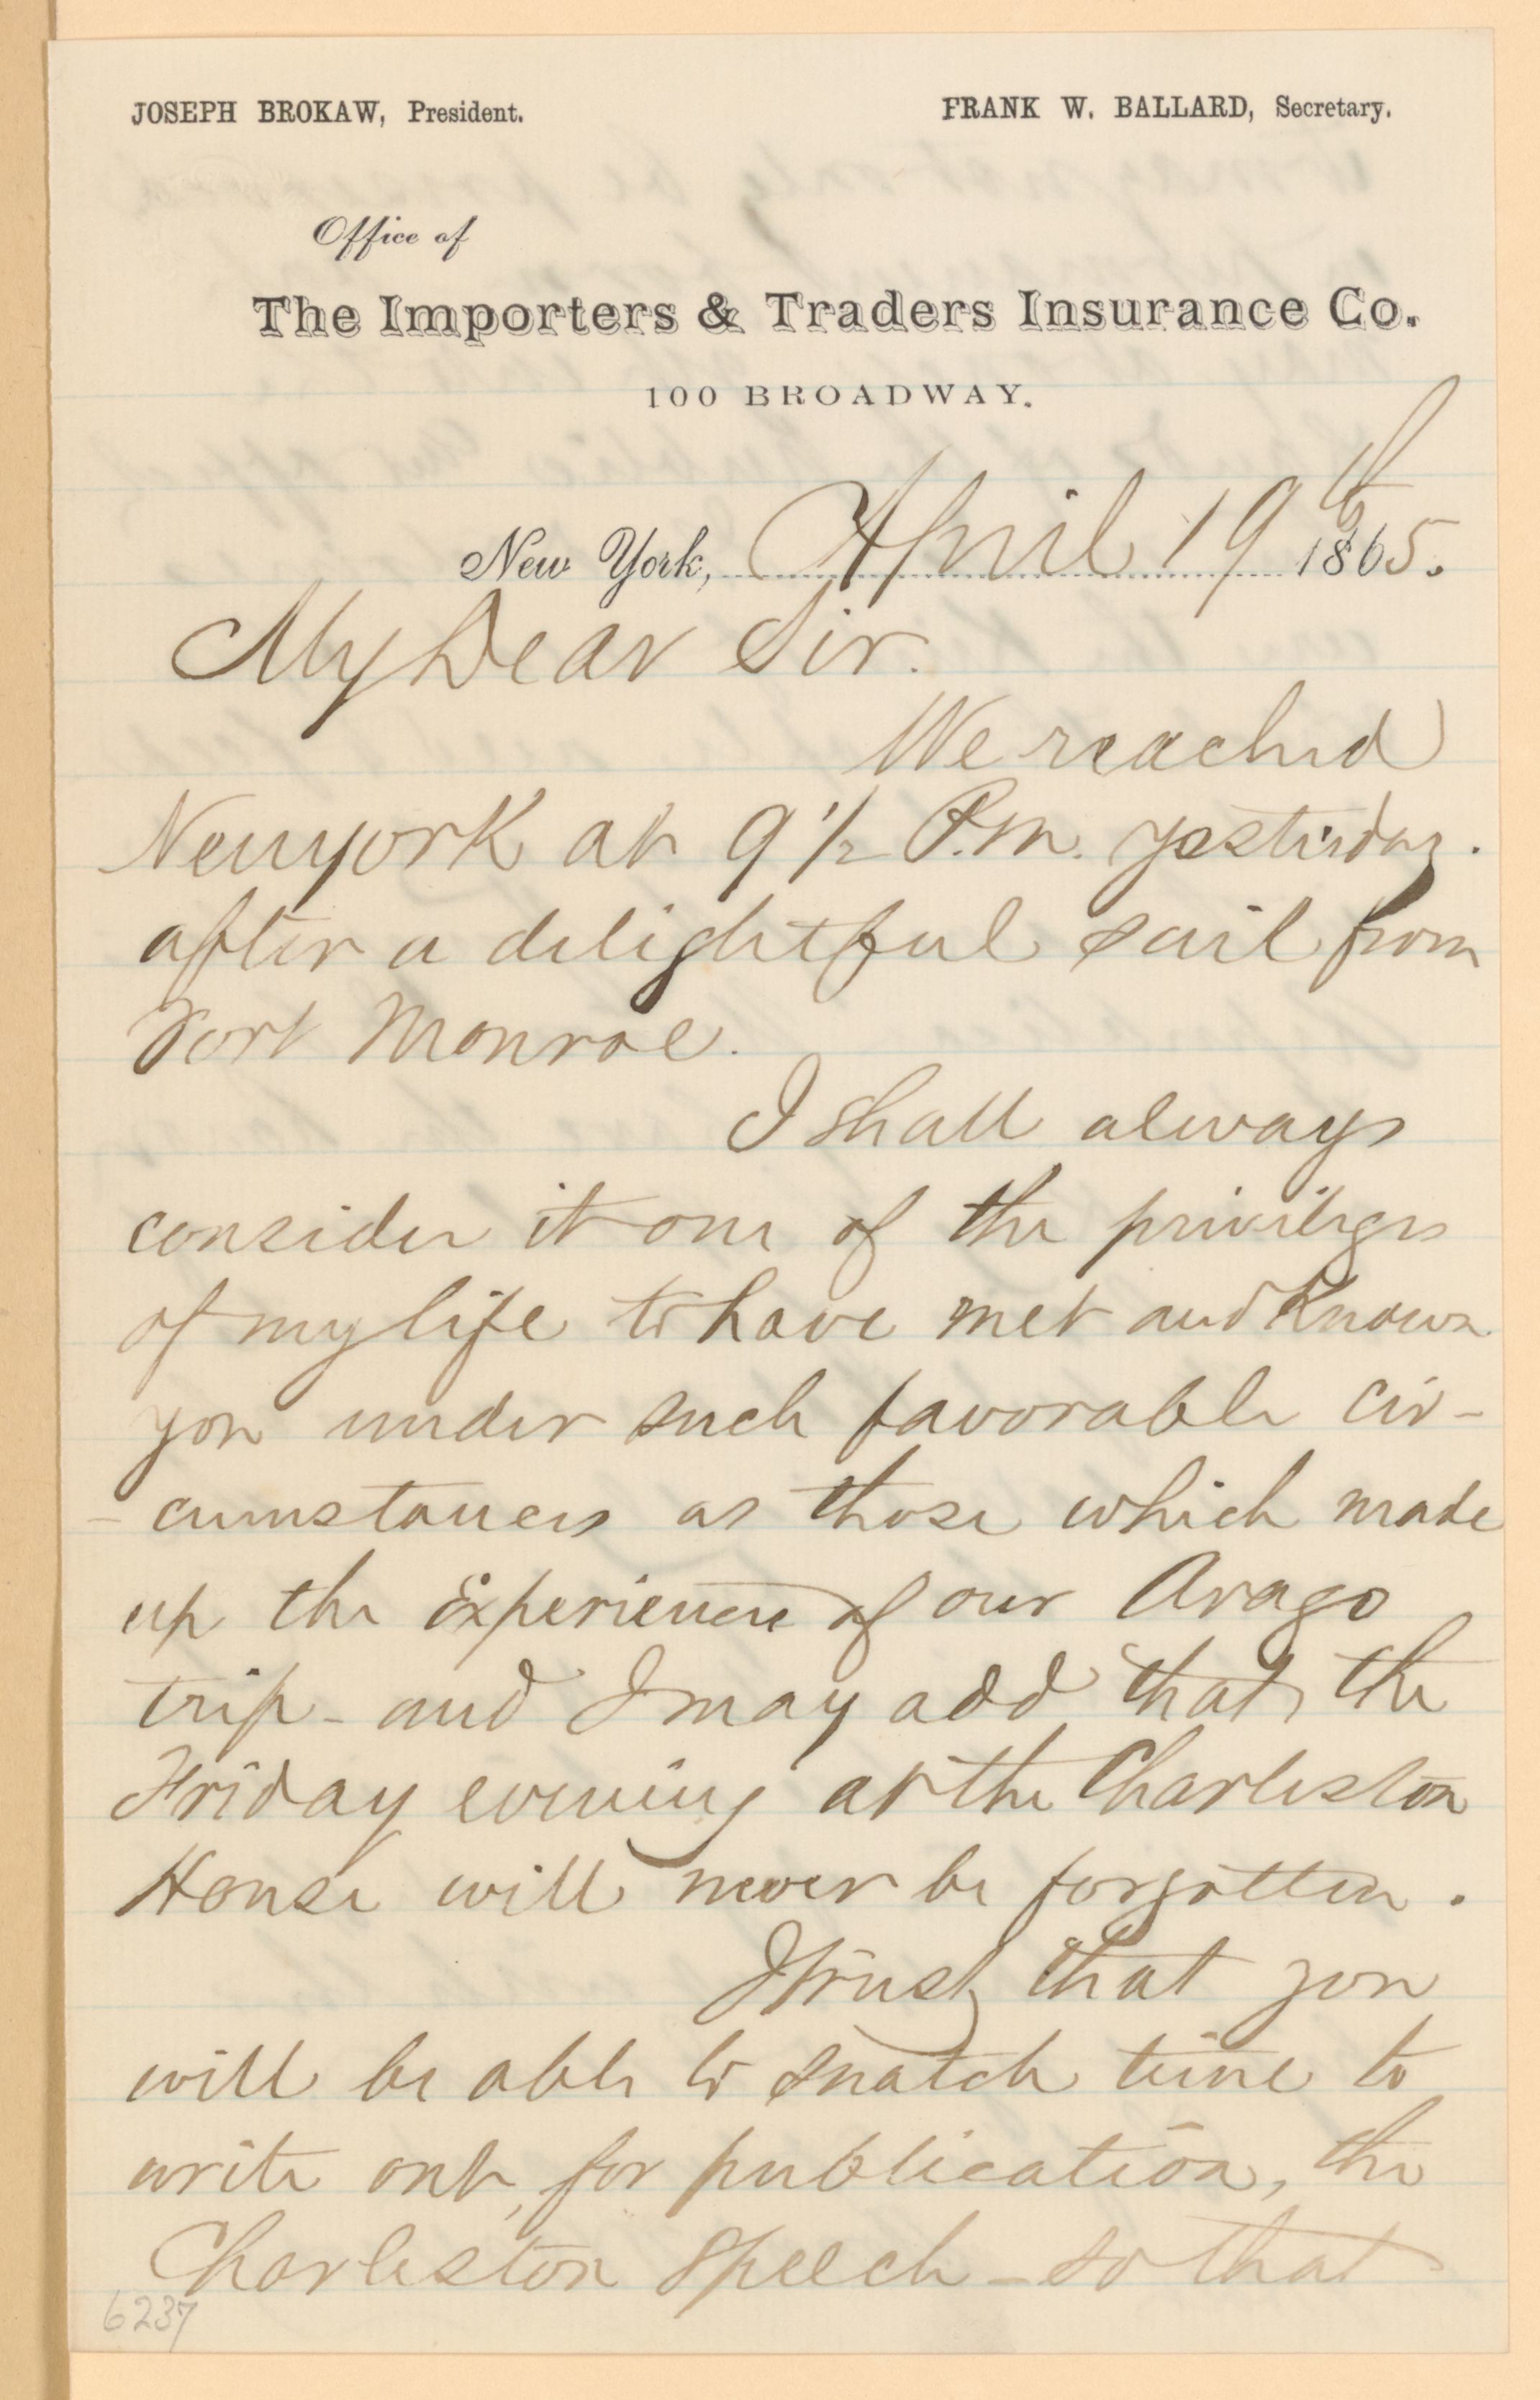 JOSEPH BROKAW, President.
FRANK W. BALLARD, Secretary.
Office of
The Importers & Traders Insurance Co.
100 BROADWAY.
New York, April 19th 1865.
My Dear Sir.
We reached
New york at 9 1/2 P.M. yesterday.
after a delightful sail from
Fort Monroe.
I shall always
consider it one of the privileges
of my life to have met and known
you under such favorable cir-
-cumstances as those which made
up the experience of our Arago
trip - and I may add that the
Friday evening at the Charleston
House will never be forgotten.
I trust that you
will be able to snatch time to
write out, for publication, the
Charleston speech - so that
6237